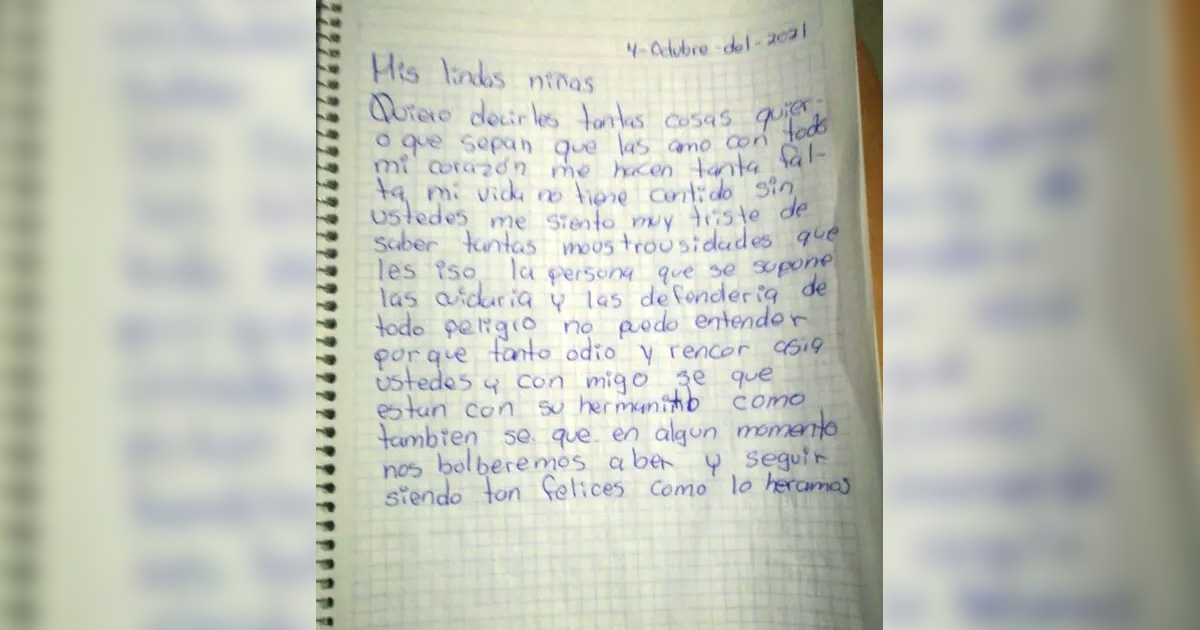 4-Octubre-del-2021
Mis lindas niñas
Quiero decirles tantas cosas quier-
o que sepan que las amo con todo
mi corazón me hacen tanta fal-
ta mi vida no tiene centido sin
ustedes me siento muy triste de
saber tantas moostrousidades que
les iso la persona que se supone
las cuidaria y las defenderia de
todo peligro no puedo entender
porque tanto odio y rencor asia
ustedes y con migo se que
estan con su hermanito como
tambien se que en algun momento
nos bolberemos aber y seguir
siendo tan felices como lo heramos